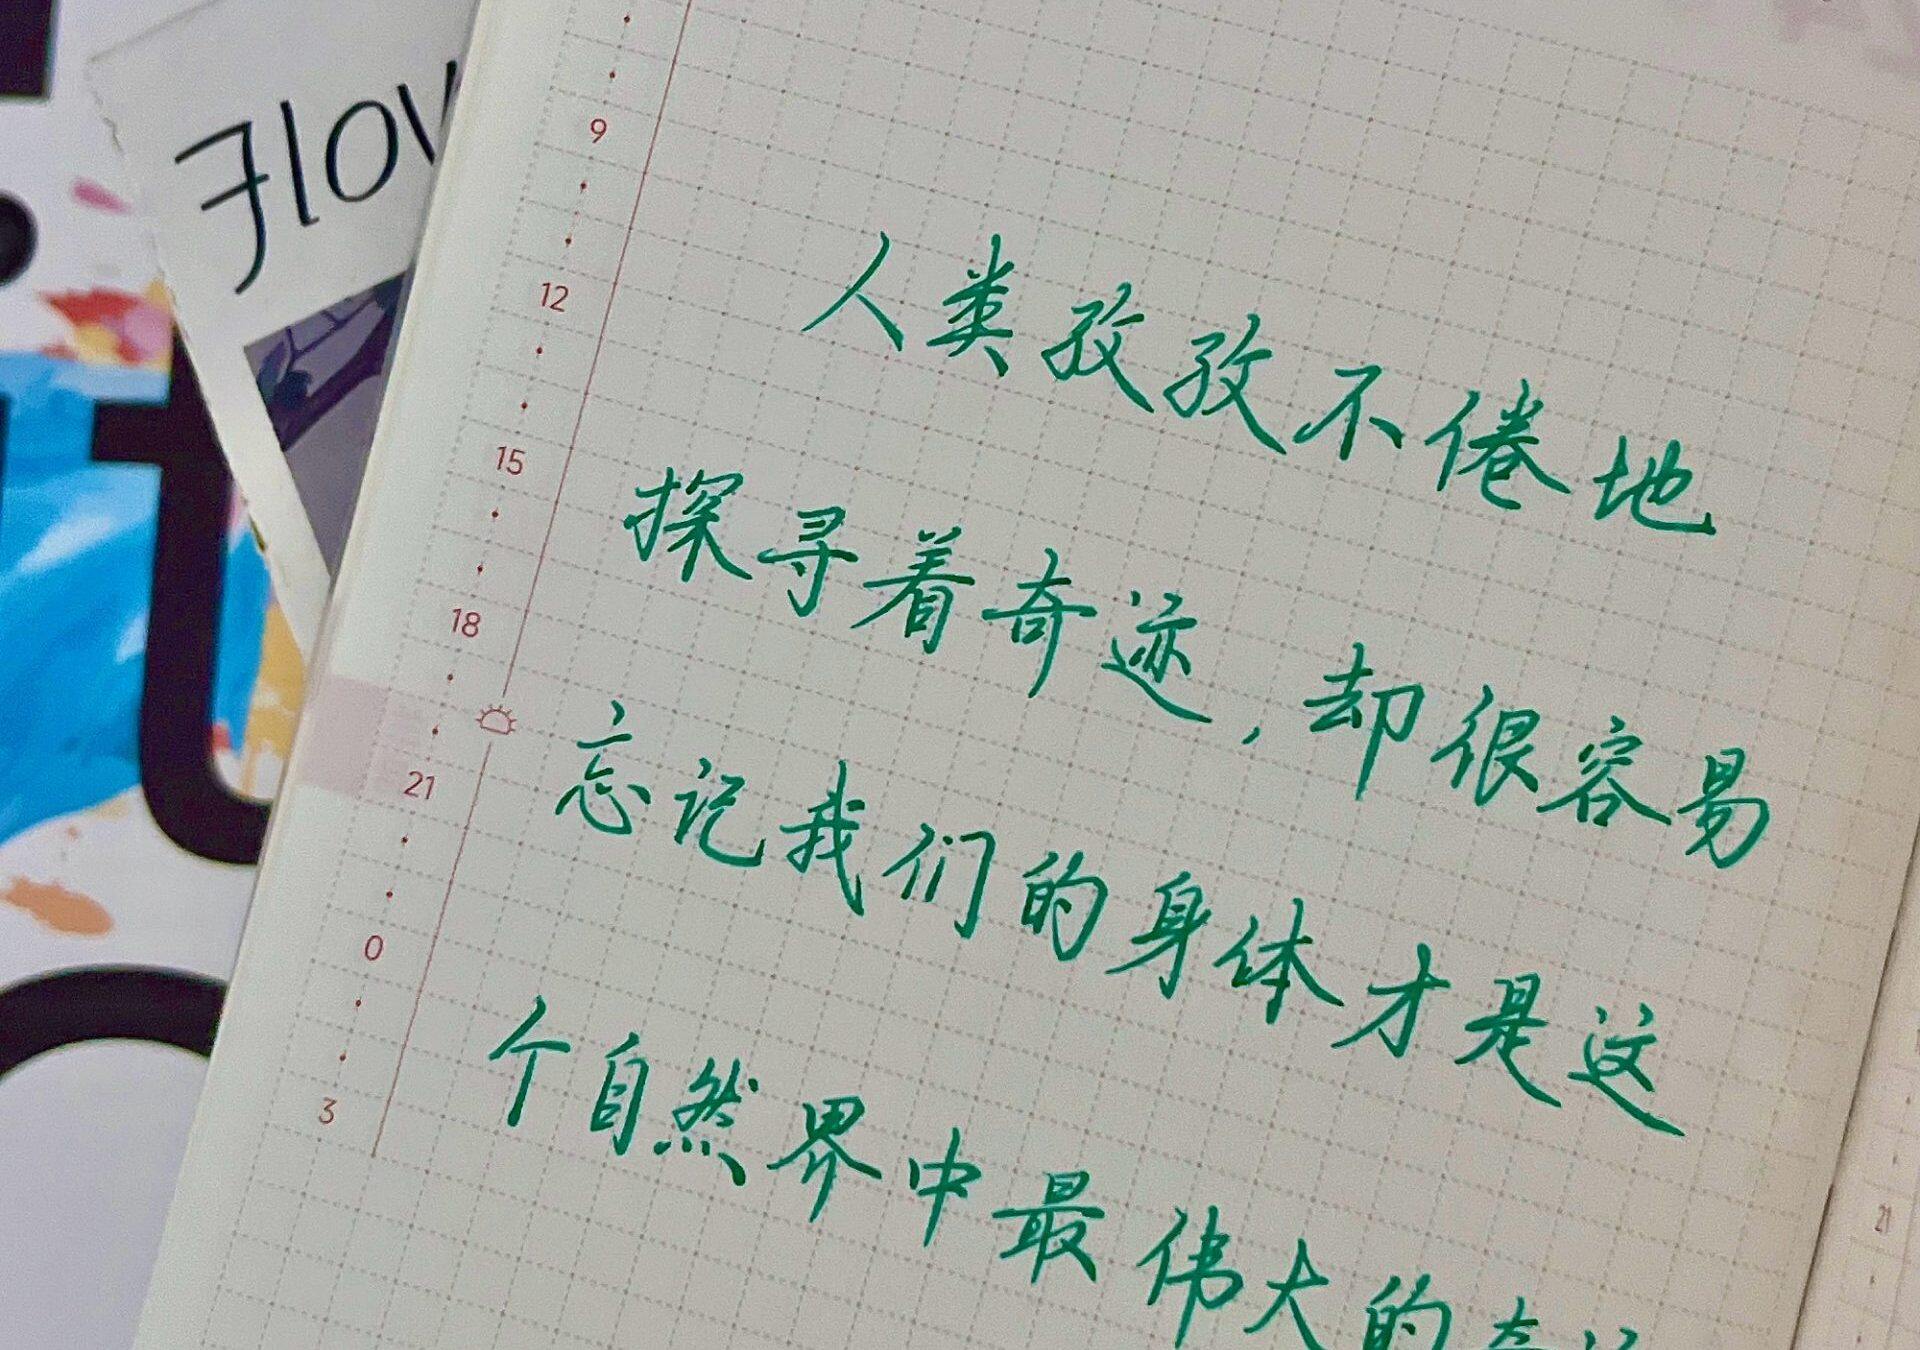 flov
9
12
15
18
21
0
3
人类孜孜不倦地
探寻着奇迹,却很容易
忘记我们的身体才是这
个自然界中最伟大的
t
21